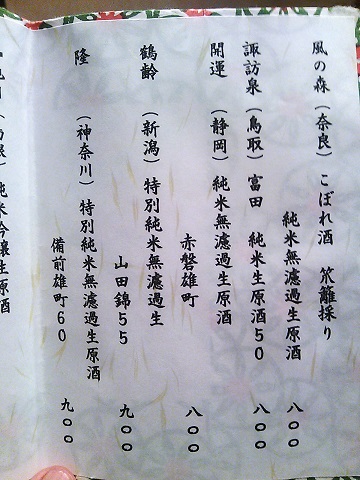 風の森 (奈良) こぼれ酒 笊籬採り
純米無濾過生原酒 八〇〇
諏訪泉 (鳥取) 富田 純米生原酒50 八〇〇
開運 (静岡) 純米無濾過生原酒
赤磐雄町 八〇〇
鶴齢 (新潟) 特別純米無濾過生
山田錦55 九〇〇
隆 (神奈川) 特別純米無濾過生原酒
備前雄町60 九〇〇